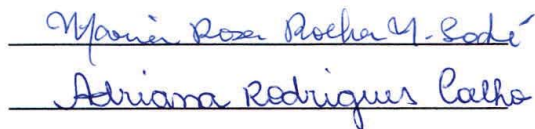 Maria Rosa Rocha M. Sodré
Adriana Rodrigues Calho